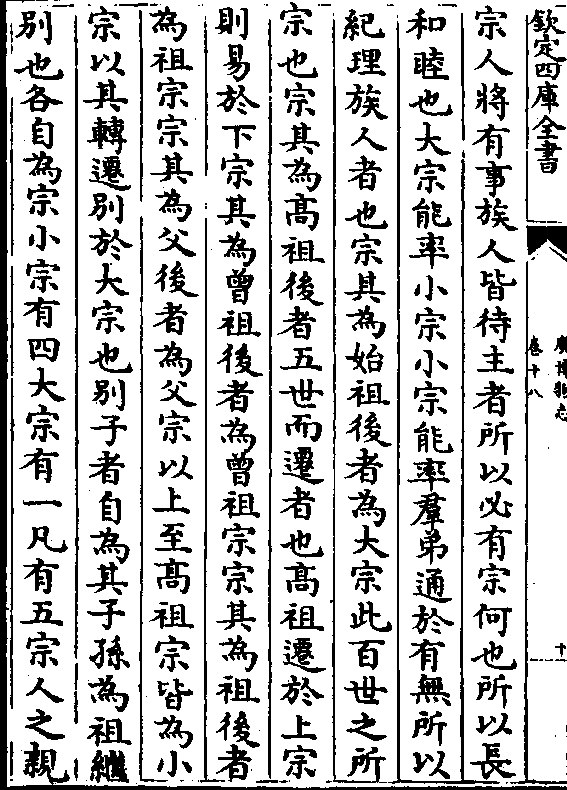 欽定四庫全書
廣博物志
卷十八
十
宗人將有事族人皆待主者所以必有宗何也所以長
和睦也大宗能率小宗小宗能率羣弟通於有無所以
紀理族人者也宗其為始祖後者為大宗此百世之所
宗也宗其為髙祖後者五世而遷者也髙祖遷於上宗
則易於下宗其為曾祖後者為曾祖宗宗其為祖後者
為祖宗宗其為父後者為父宗以上至髙祖宗皆為小
宗以其轉遷別於大宗也別子者自為其子孫為祖繼
別也各自為宗小宗有四大宗有一凡有五宗人之親